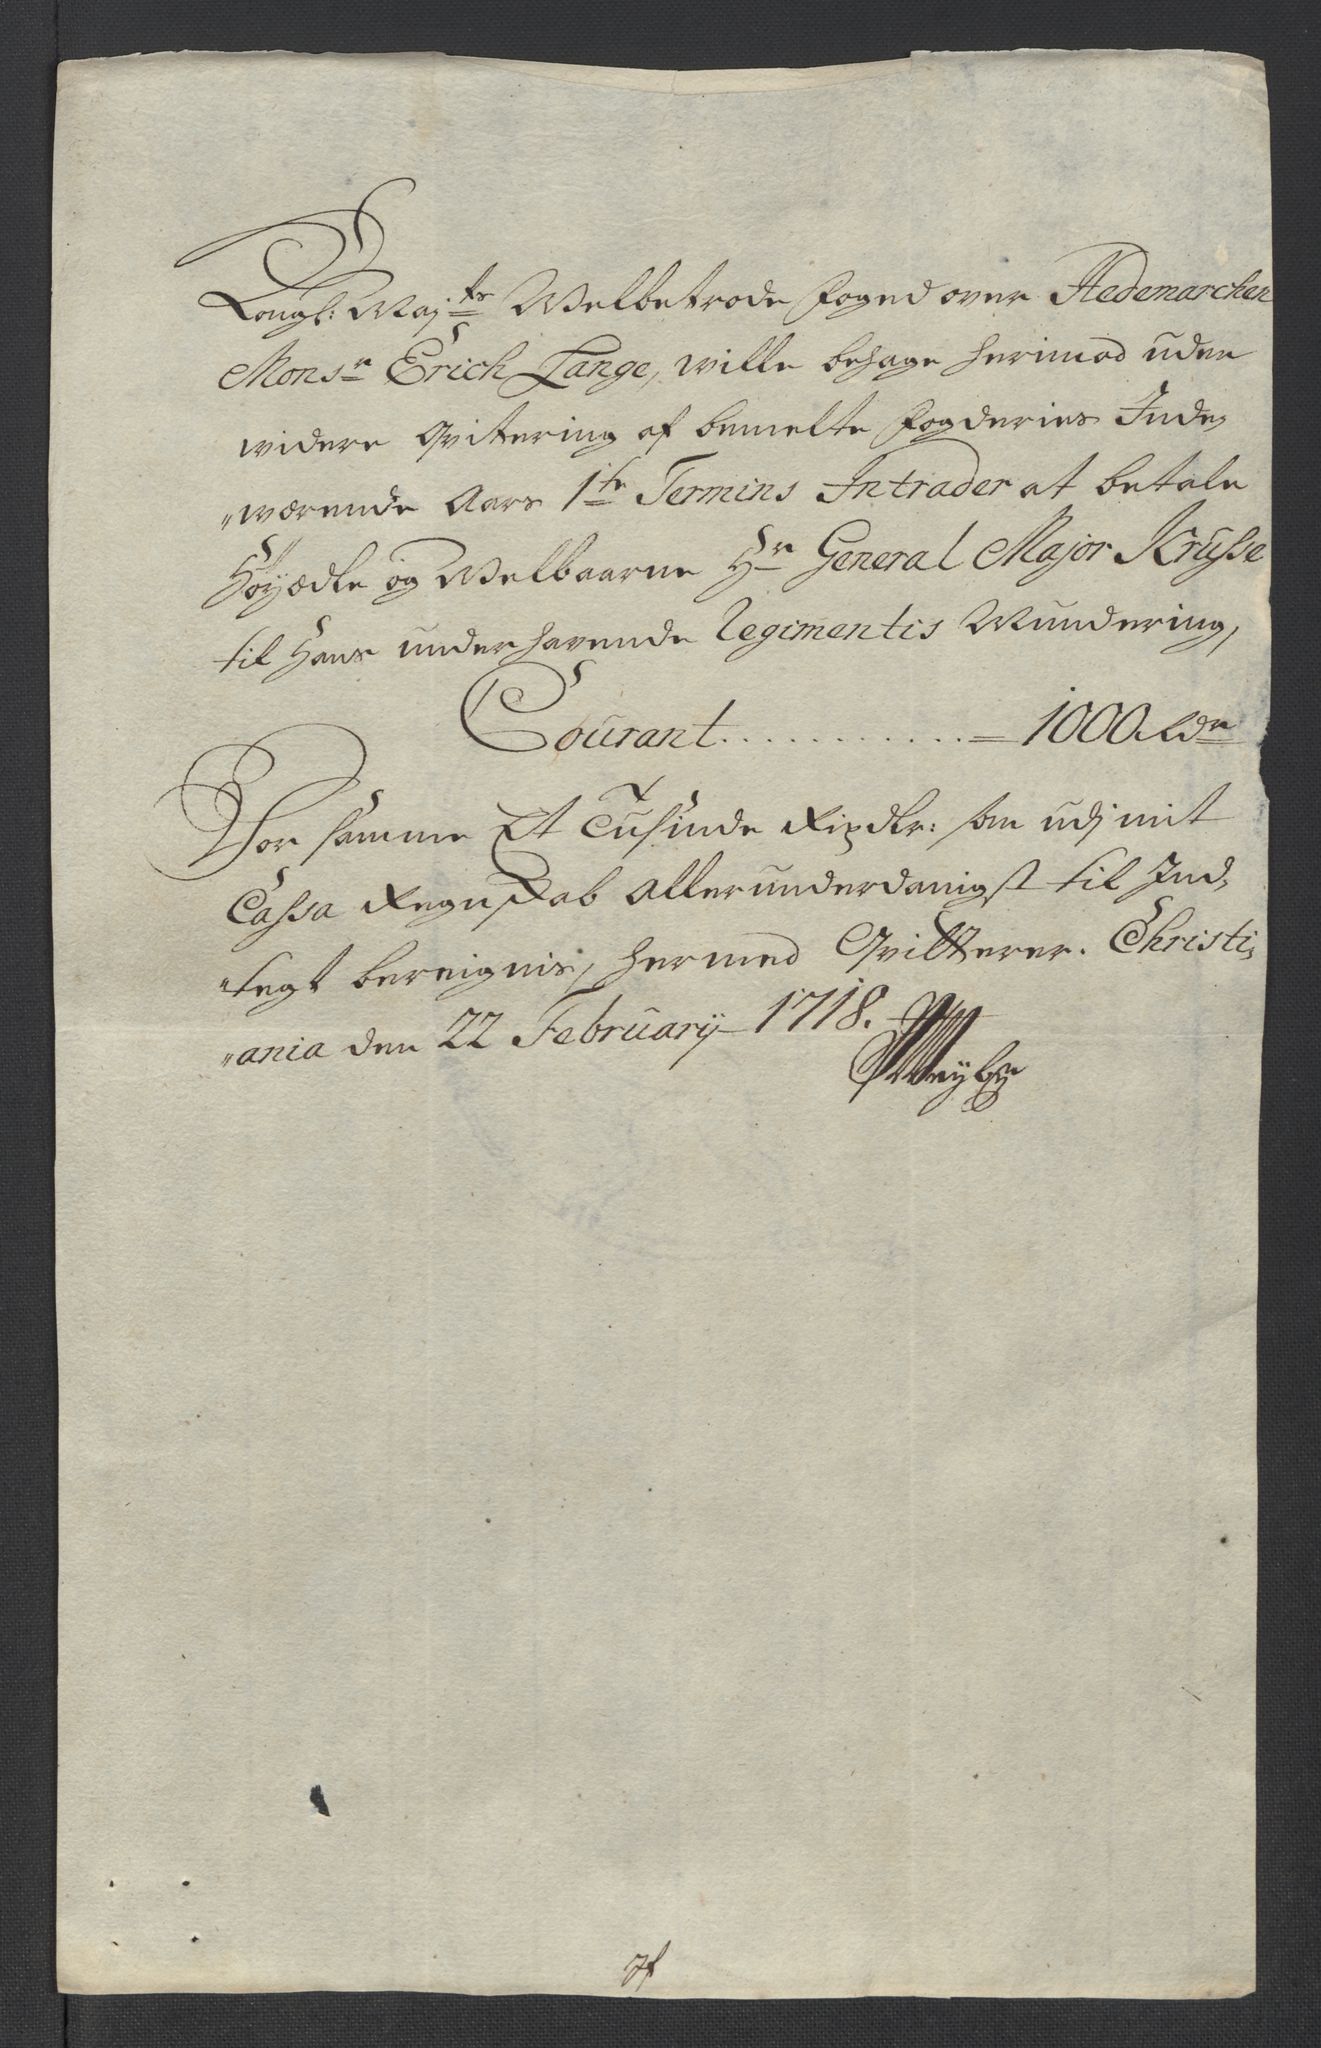 Kongl: Maj:ts Welbetrode Foged over Hedemarchen
Monsr Erich Lange, wille behage herimod uden
widere Qvitering af bemelte Fogderies Inde,
"værende Aars 1te Termins Intrader at betale
Høyædle og Welbaarne Hr General Major Krusse
til Hans underhavende Regimentis Mundering,
Courant = 1000 Rdr
For samme Et Tusinde Rixdlr: som udj mit
Cassa Regnskab Allerunderdanigst til Ind,
"tegt bereignis, hermed Qvitterer. Christi,
"ania den 22 Februarij 1718.